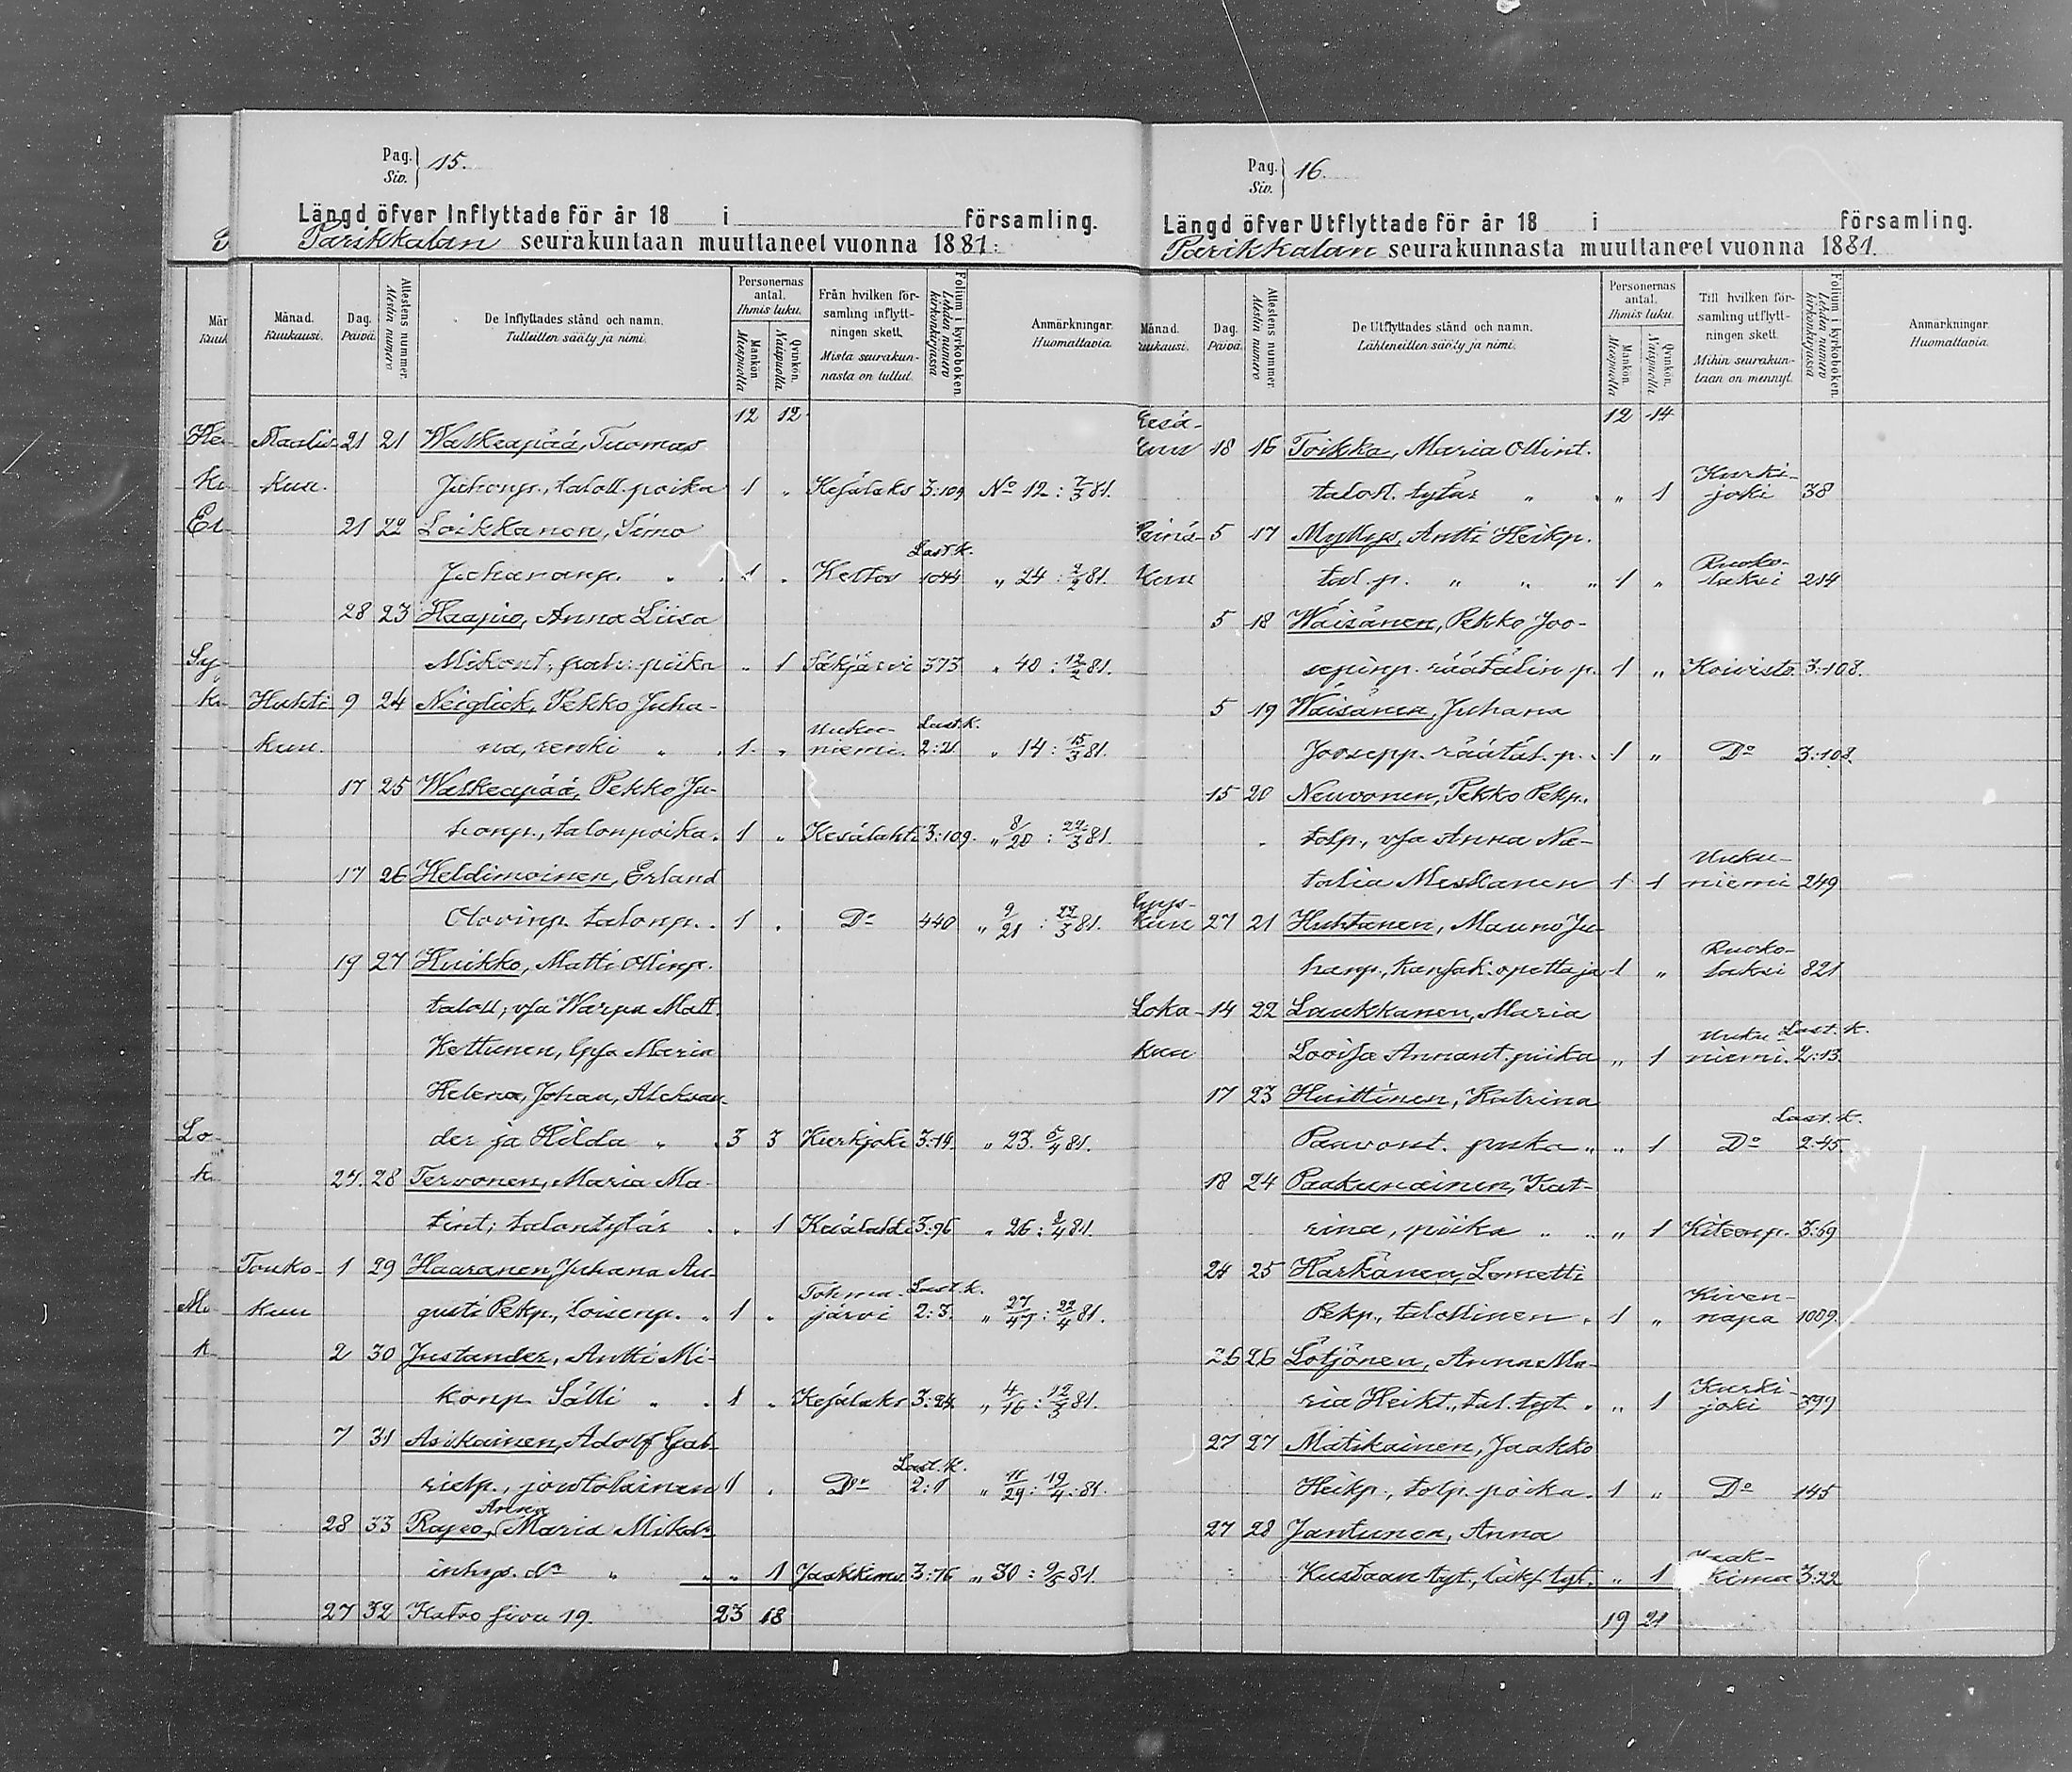 Pag. Siv. } 15.
Längd öfver Inflyttade för år 18 i församling.
Parikkalan seurakuntaan muuttaneet vuonna 1881.
Månad. Kuukausi.
Dag. Päivä.
Attestens nummer. Atestin numero
De Inflyttades stånd och namn. Tulleitten sääty ja nimi.
Personernas antal. Ihmis luku.
Mankön. Miespuolia
Qvinkön. Naispuolia
Från hvilken församling inflyttningen skett. Mista seurakunnasta on tullut.
Folium i kyrkoboken. Lehden numero kirkonkirjassa
Anmärkningar. Huomattavia.
12 12
Maalis- 21 21 Walkeapää, Tuomas
kuu. Juhonp., taloll. poika 1 " Kesälaks 3:109 No 12: 7/3 81.
21 22 Loikkanen, Simo
Juhananp. " 1 " Keltos Last.k. 1044 " 24: 2/2 81.
28 23 Haapio, Anna Liisa
Mikont., palv. piika " 1 Säkjärvi 373 " 40: 12/2 81.
Huhti 9 24 Neiglick, Pekko Juha-
kuu. na, renki " 1 " Uukuniemi. Last.k. 2:21 " 14: 15/3 81.
17 25 Walkeapää, Pekko Ju-
honp., talonpoika. 1 " Kesälahti 3:109. " 8/20: 22/3 81.
17 26 Heldimoinen, Erland
Olovinp. talonp. 1 " Do 440 " 9/21: 22/3 81.
19 27 Huikko, Matti Ollinp.
taloll; vsa Warpu Matt.
Kettunen, lpsa Maria
Helena, Johan, Aleksan-
der ja Hilda " 3 3 Kurkijoki 3:14. " 23. 5/4 81.
27. 28 Tervonen, Maria Ma-
tint; talontytär " 1 Kesälahti 3:96 " 26: 2/4 81.
Touko- 1 29 Haaranen, Juhana Au-
kuu gusti Pekp., loisenp. 1 " Tohmajärvi Last.k. 2:3. " 27/47: 22/4 81.
2 30 Justander, Antti Mi-
konp. Sälli " 1 " Kesälaks 3:24. " 4/16: 12/3 81.
7 31 Asikainen, Adolf Gab-
rielp., joutolainen 1 " Do Last.k. 2:1 " 11/29: 19/4: 81.
28 33 Rapeo, Anna Maria Mikd:r
inhys. dr " " 1 Jaakkima 3:76 " 30: 9/5 81.
27 32 Katso sivu 19. 23 18
Pag. Siv. } 16.
Längd öfver Utflyttade för år 18 i församling.
Parikkalan seurakunnasta muuttaneet vuonna 1881.
Månad. Kuukausi.
Dag. Päivä.
Attestens nummer. Atestin numero
De Utflyttades stånd och namn. Lähteneitten sääty ja nimi.
Personernas antal. Ihmis luku.
Mankön. Miespuolia
Qvinkön. Naispuolia
Till hvilken församling utflyttningen skett. Mihin seurakuntaan on mennyt.
Folium i kyrkoboken. Lehden numero kirkonkirjassa
Anmärkningar. Huomattavia.
Kesä- 12 14
kuu 18 16 Toikka, Maria Ollint.
taloll. tytär " " 1 Kurkijoki 38
Heinä- 5 17 Myllys, Antti Heikp.
kuu tal. p. " " " 1 " Ruokolaksi 214
5 18 Wäisänen, Pekko Joo-
sepinp. räätälin p. 1 " Koivisto. 3:108.
5 19 Wäisänen, Juhana
Joosepp. räätäl. p. 1 " Do 3:108.
15 20 Neuvonen, Pekko Pekp.
tolp., vsa Anna Na-
talia Meskanen 1 1 Uukuniemi 249
Syys-
kuu 27 21 Huhtanen, Mauno Ju-
hanp., kansak. opettaja 1 " Ruokolaksi 821
Loka- 14 22 Laukkanen, Maria
kuu Lovisa Annant. piika " 1 Uukuniemi. Last.k. 2:13.
17 23 Huittinen, Katrina
Paavont. piika " " 1 Do Last.k. 2:45.
18 24 Paakunainen, Kat-
rina, piika " " 1 Kiteenp. 3:69
24 25 Härkänen, Lometti
Pekp., talollinen 1 " Kivennapa 1089.
26 26 Lötjönen, Anna Ma-
ria Heikt., tal. tyt. " 1 Kurkijoki 399
27 27 Matikainen, Jaakko
Heikp., tolp. poika. 1 " Do 145
27 28 Jantunen, Anna
Kustaan tyt., läks. tyt. " 1 Jaakkima 3:22
19 21